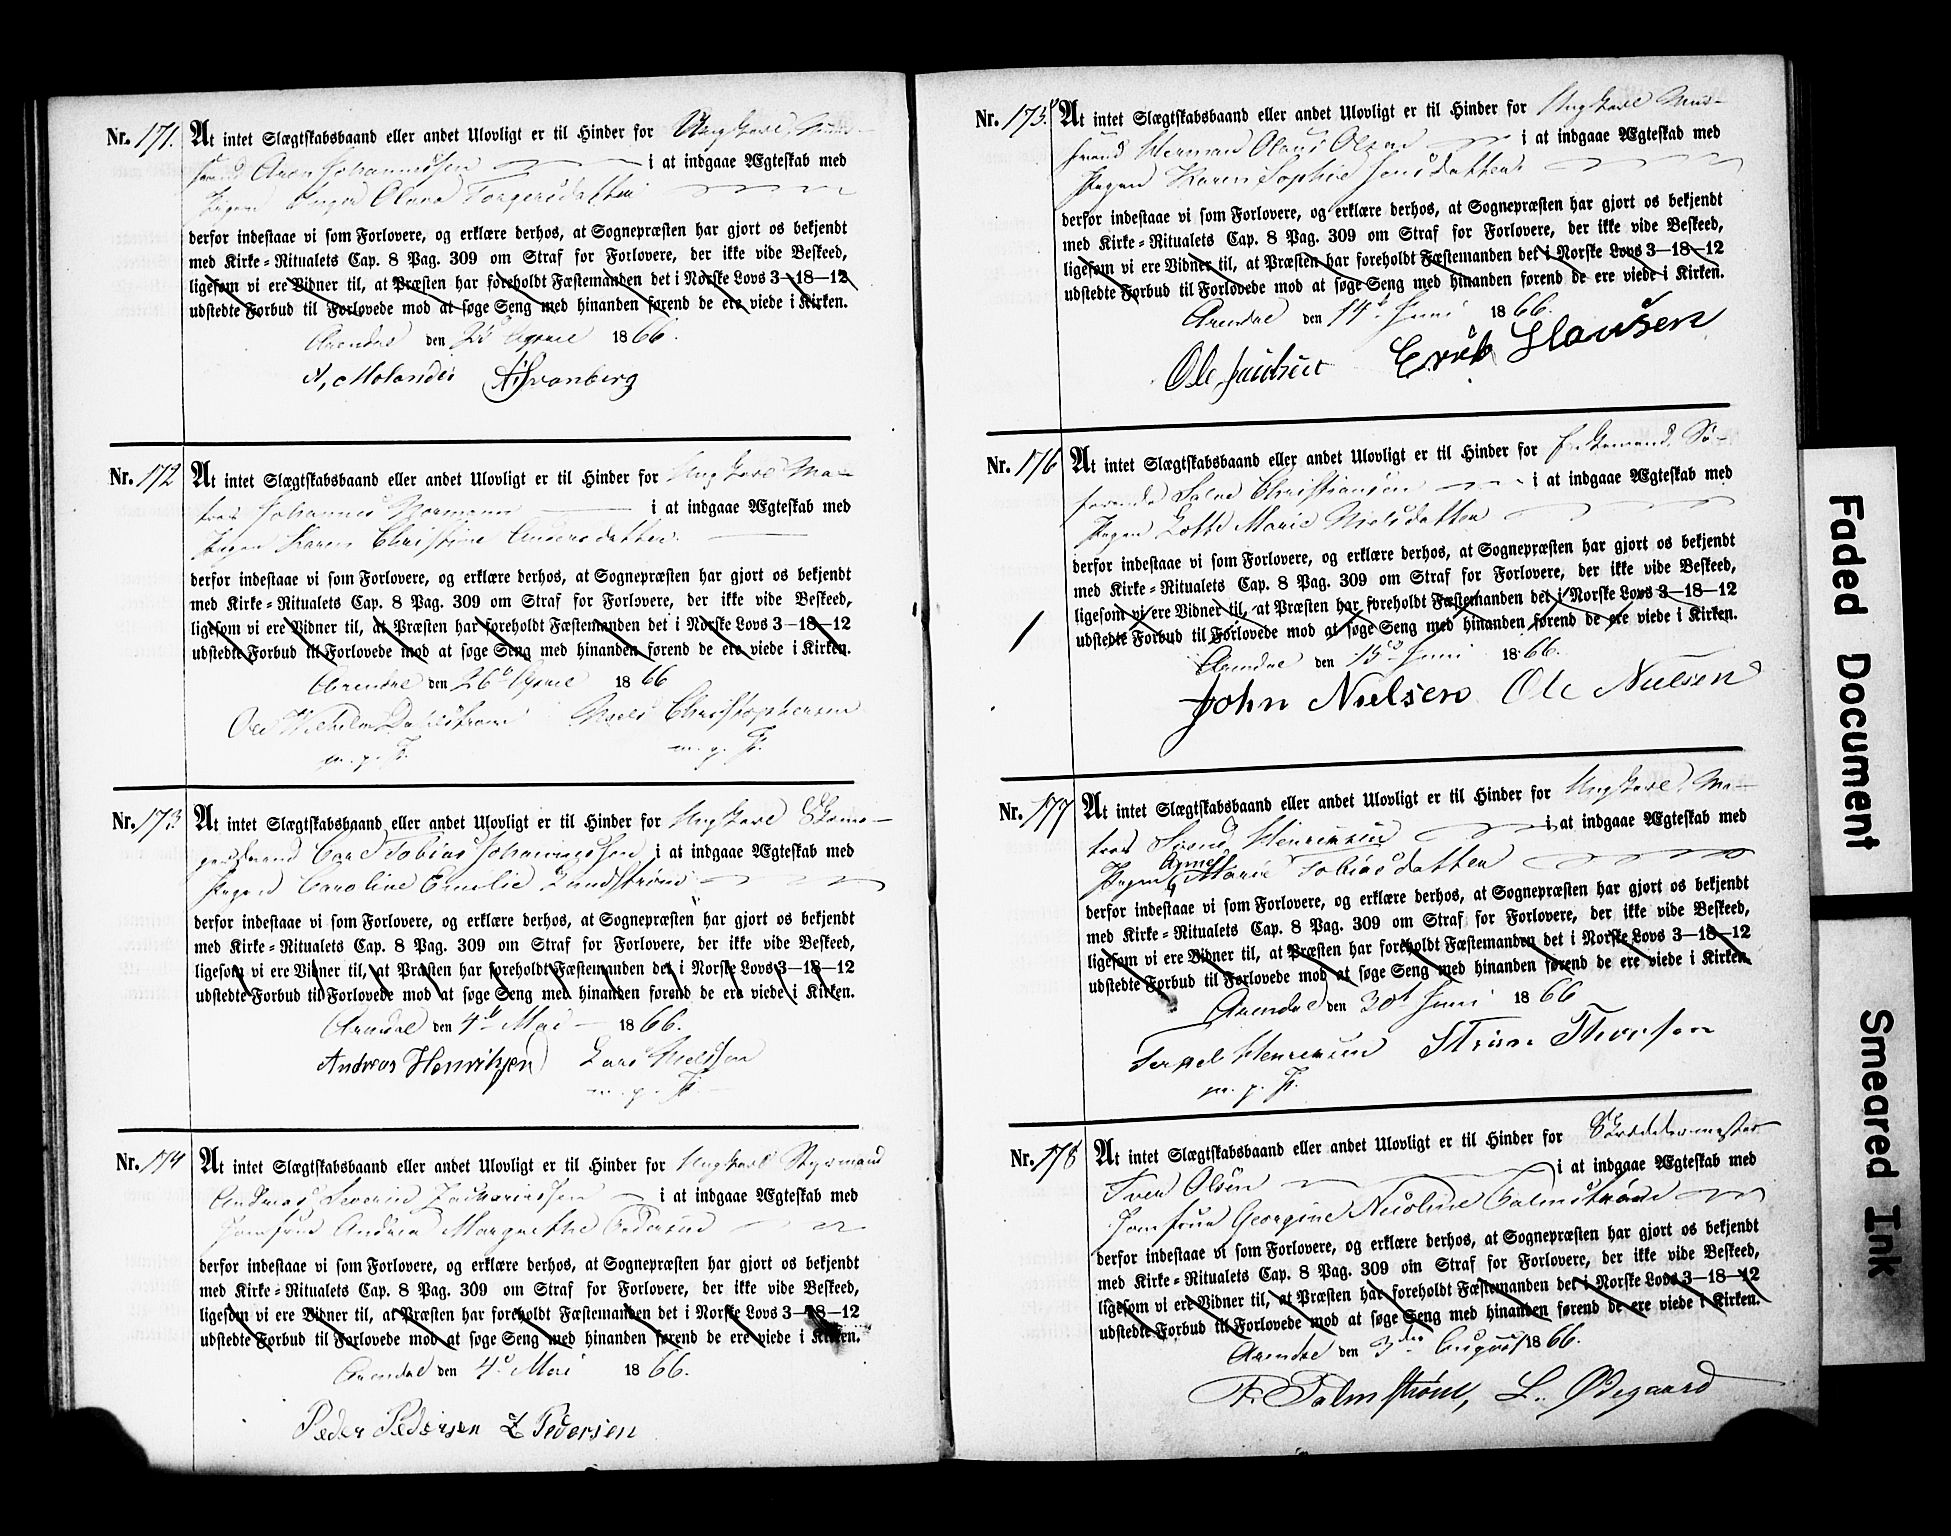 Nr. 171. At intet Slægtskabsbaand eller andet Ulovligt er til Hinder for Ungkarl
Aron Johannessen i at indgaae Ægteskab med
Pigen Inger Olava Torgersdatter
derfor indestaae vi som Forlovere, og erklære derhos, at Sognepræsten har gjort os bekjendt
med Kirke-Ritualets Cap. 8 Pag. 309 om Straf for Forlovere, der ikke vide Beskeed,
ligesom vi ere Vidner til, at Præsten har foreholdt Fæstemanden det i Norske Lovs 3—18—12
udstedte Forbud til Forlovede mod at søge Seng med hinanden førend de ere viede i Kirken.
Arendal den April 1866.
Svanberg
Nr. 172 At intet Slægtskabsbaand eller andet Ulovligt er til Hinder for Ungkarl Ma-
tros Johannes Normann i at indgaae Ægteskab med
Pigen Karen Christine Andersdatter.
derfor indestaae vi som Forlovere, og erklære derhos, at Sognepræsten har gjort os bekjendt
med Kirke-Ritualets Cap. 8 Pag. 309 om Straf for Forlovere, der ikke vide Beskeed,
ligesom vi ere Vidner til, at Præsten har foreholdt Fæstemanden det i Norske Lovs 3—18—12
udstedte Forbud til Forlovede mod at søge Seng med hinanden førend de ere viede i Kirken.
Arendal den 26d April 1866
Niels Christophersen
m. p. F. m. p. F.
Nr. 173 At intet Slægtskabsbaand eller andet Ulovligt er til Hinder for Ungkarl
Carl Tobias Johannessen i at indgaae Ægteskab med
Pigen Caroline Emilie Lundstrøm
derfor indestaae vi som Forlovere, og erklære derhos, at Sognepræsten har gjort os bekjendt
med Kirke-Ritualets Cap. 8 Pag. 309 om Straf for Forlovere, der ikke vide Beskeed,
ligesom vi ere Vidner til, at Præsten har foreholdt Fæstemanden det i Norske Lovs 3—18—12
udstedte Forbud til Forlovede mod at søge Seng med hinanden førend de ere viede i Kirken.
Arendal den 4d Mai 1866.
Andreas Henriksen Lars Nielsen
m. p. F.
Nr. 174 At intet Slægtskabsbaand eller andet Ulovligt er til Hinder for Ungkarl Styrmand
Andreas Severin Zachariassen i at indgaae Ægteskab med
Jomfrue Andrea Margrethe Pedersen
derfor indestaae vi som Forlovere, og erklære derhos, at Sognepræsten har gjort os bekjendt
med Kirke-Ritualets Cap. 8 Pag. 309 om Straf for Forlovere, der ikke vide Beskeed,
ligesom vi ere Vidner til, at Præsten har foreholdt Fæstemanden det i Norske Lovs 3—18—12
udstedte Forbud til Forlovede mod at søge Seng med hinanden førend de ere viede i Kirken.
Arendal den 4d Mai 1866.
Peder Pedersen Z Pedersen
Nr. 175. At intet Slægtskabsbaand eller andet Ulovligt er til Hinder for Ungkarl
Herman Olaus Olsen i at indgaae Ægteskab med
Pigen Karen Sophie Jensdatter
derfor indestaae vi som Forlovere, og erklære derhos, at Sognepræsten har gjort os bekjendt
med Kirke-Ritualets Cap. 8 Pag. 309 om Straf for Forlovere, der ikke vide Beskeed,
ligesom vi ere Vidner til, at Præsten har foreholdt Fæstemanden det i Norske Lovs 3—18—12
udstedte Forbud til Forlovede mod at søge Seng med hinanden førend de ere viede i Kirken.
Arendal den 14d Juni 1866.
Ole Erik Hansen
Nr. 176 At intet Slægtskabsbaand eller andet Ulovligt er til Hinder for Enkemand Sø-
farende Christiansen i at indgaae Ægteskab med
Pigen Lotte Marie Nielsdatter
derfor indestaae vi som Forlovere, og erklære derhos, at Sognepræsten har gjort os bekjendt
med Kirke-Ritualets Cap. 8 Pag. 309 om Straf for Forlovere, der ikke vide Beskeed,
ligesom vi ere Vidner til, at Præsten har foreholdt Fæstemanden det i Norske Lovs 3—18—12
udstedte Forbud til Forlovede mod at søge Seng med hinanden førend de ere viede i Kirken.
Arendal den 15d Juni 1866.
John Nielsen Ole Nielsen
Nr. 177 At intet Slægtskabsbaand eller andet Ulovligt er til Hinder for Ungkarl, Ma-
tros Svend Henriksen i at indgaae Ægteskab med
Pigen Marie Tobiasdatter
derfor indestaae vi som Forlovere, og erklære derhos, at Sognepræsten har gjort os bekjendt
med Kirke-Ritualets Cap. 8 Pag. 309 om Straf for Forlovere, der ikke vide Beskeed,
ligesom vi ere Vidner til, at Præsten har foreholdt Fæstemanden det i Norske Lovs 3—18—12
udstedte Forbud til Forlovede mod at søge Seng med hinanden førend de ere viede i Kirken.
Arendal den 30t Juni 1866
Terkel Henriksen
m. p. F.
Nr. 178 At intet Slægtskabsbaand eller andet Ulovligt er til Hinder for Skreddermester
Sven Olsen i at indgaae Ægteskab med
Jomfrue Georgine Nicoline Palmstrøm
derfor indestaae vi som Forlovere, og erklære derhos, at Sognepræsten har gjort os bekjendt
med Kirke-Ritualets Cap. 8 Pag. 309 om Straf for Forlovere, der ikke vide Beskeed,
ligesom vi ere Vidner til, at Præsten har foreholdt Fæstemanden det i Norske Lovs 3—18—12
udstedte Forbud til Forlovede mod at søge Seng med hinanden førend de ere viede i Kirken.
Arendal den 3die August 1866.
Palmstrøm, L. Ødegaard
Faded Document
Smeared Ink